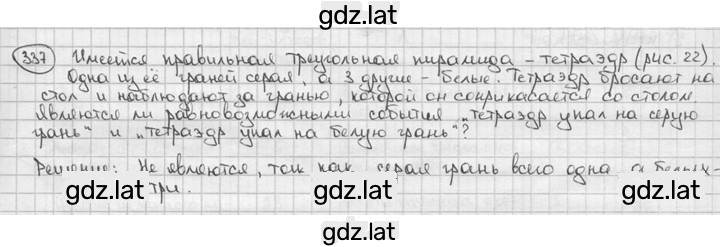 gdz.lat
337 Имеется правильная треугольная пирамида - тетраэдр (рис. 22).
Одна из её граней серая, а 3 другие - белые. Тетраэдр бросают на
стол и наблюдают за гранью, которой он соприкасается со столом.
gdz.lat gdz.lat
Являются ли равновозможными события „тетраэдр упал на серую
грань“ и „тетраэдр упал на белую грань“?
Решение: Не являются, так как серая грань всего одна, а белых -
gdz.lat gdz.lat gdz.lat
три.
gdz.lat